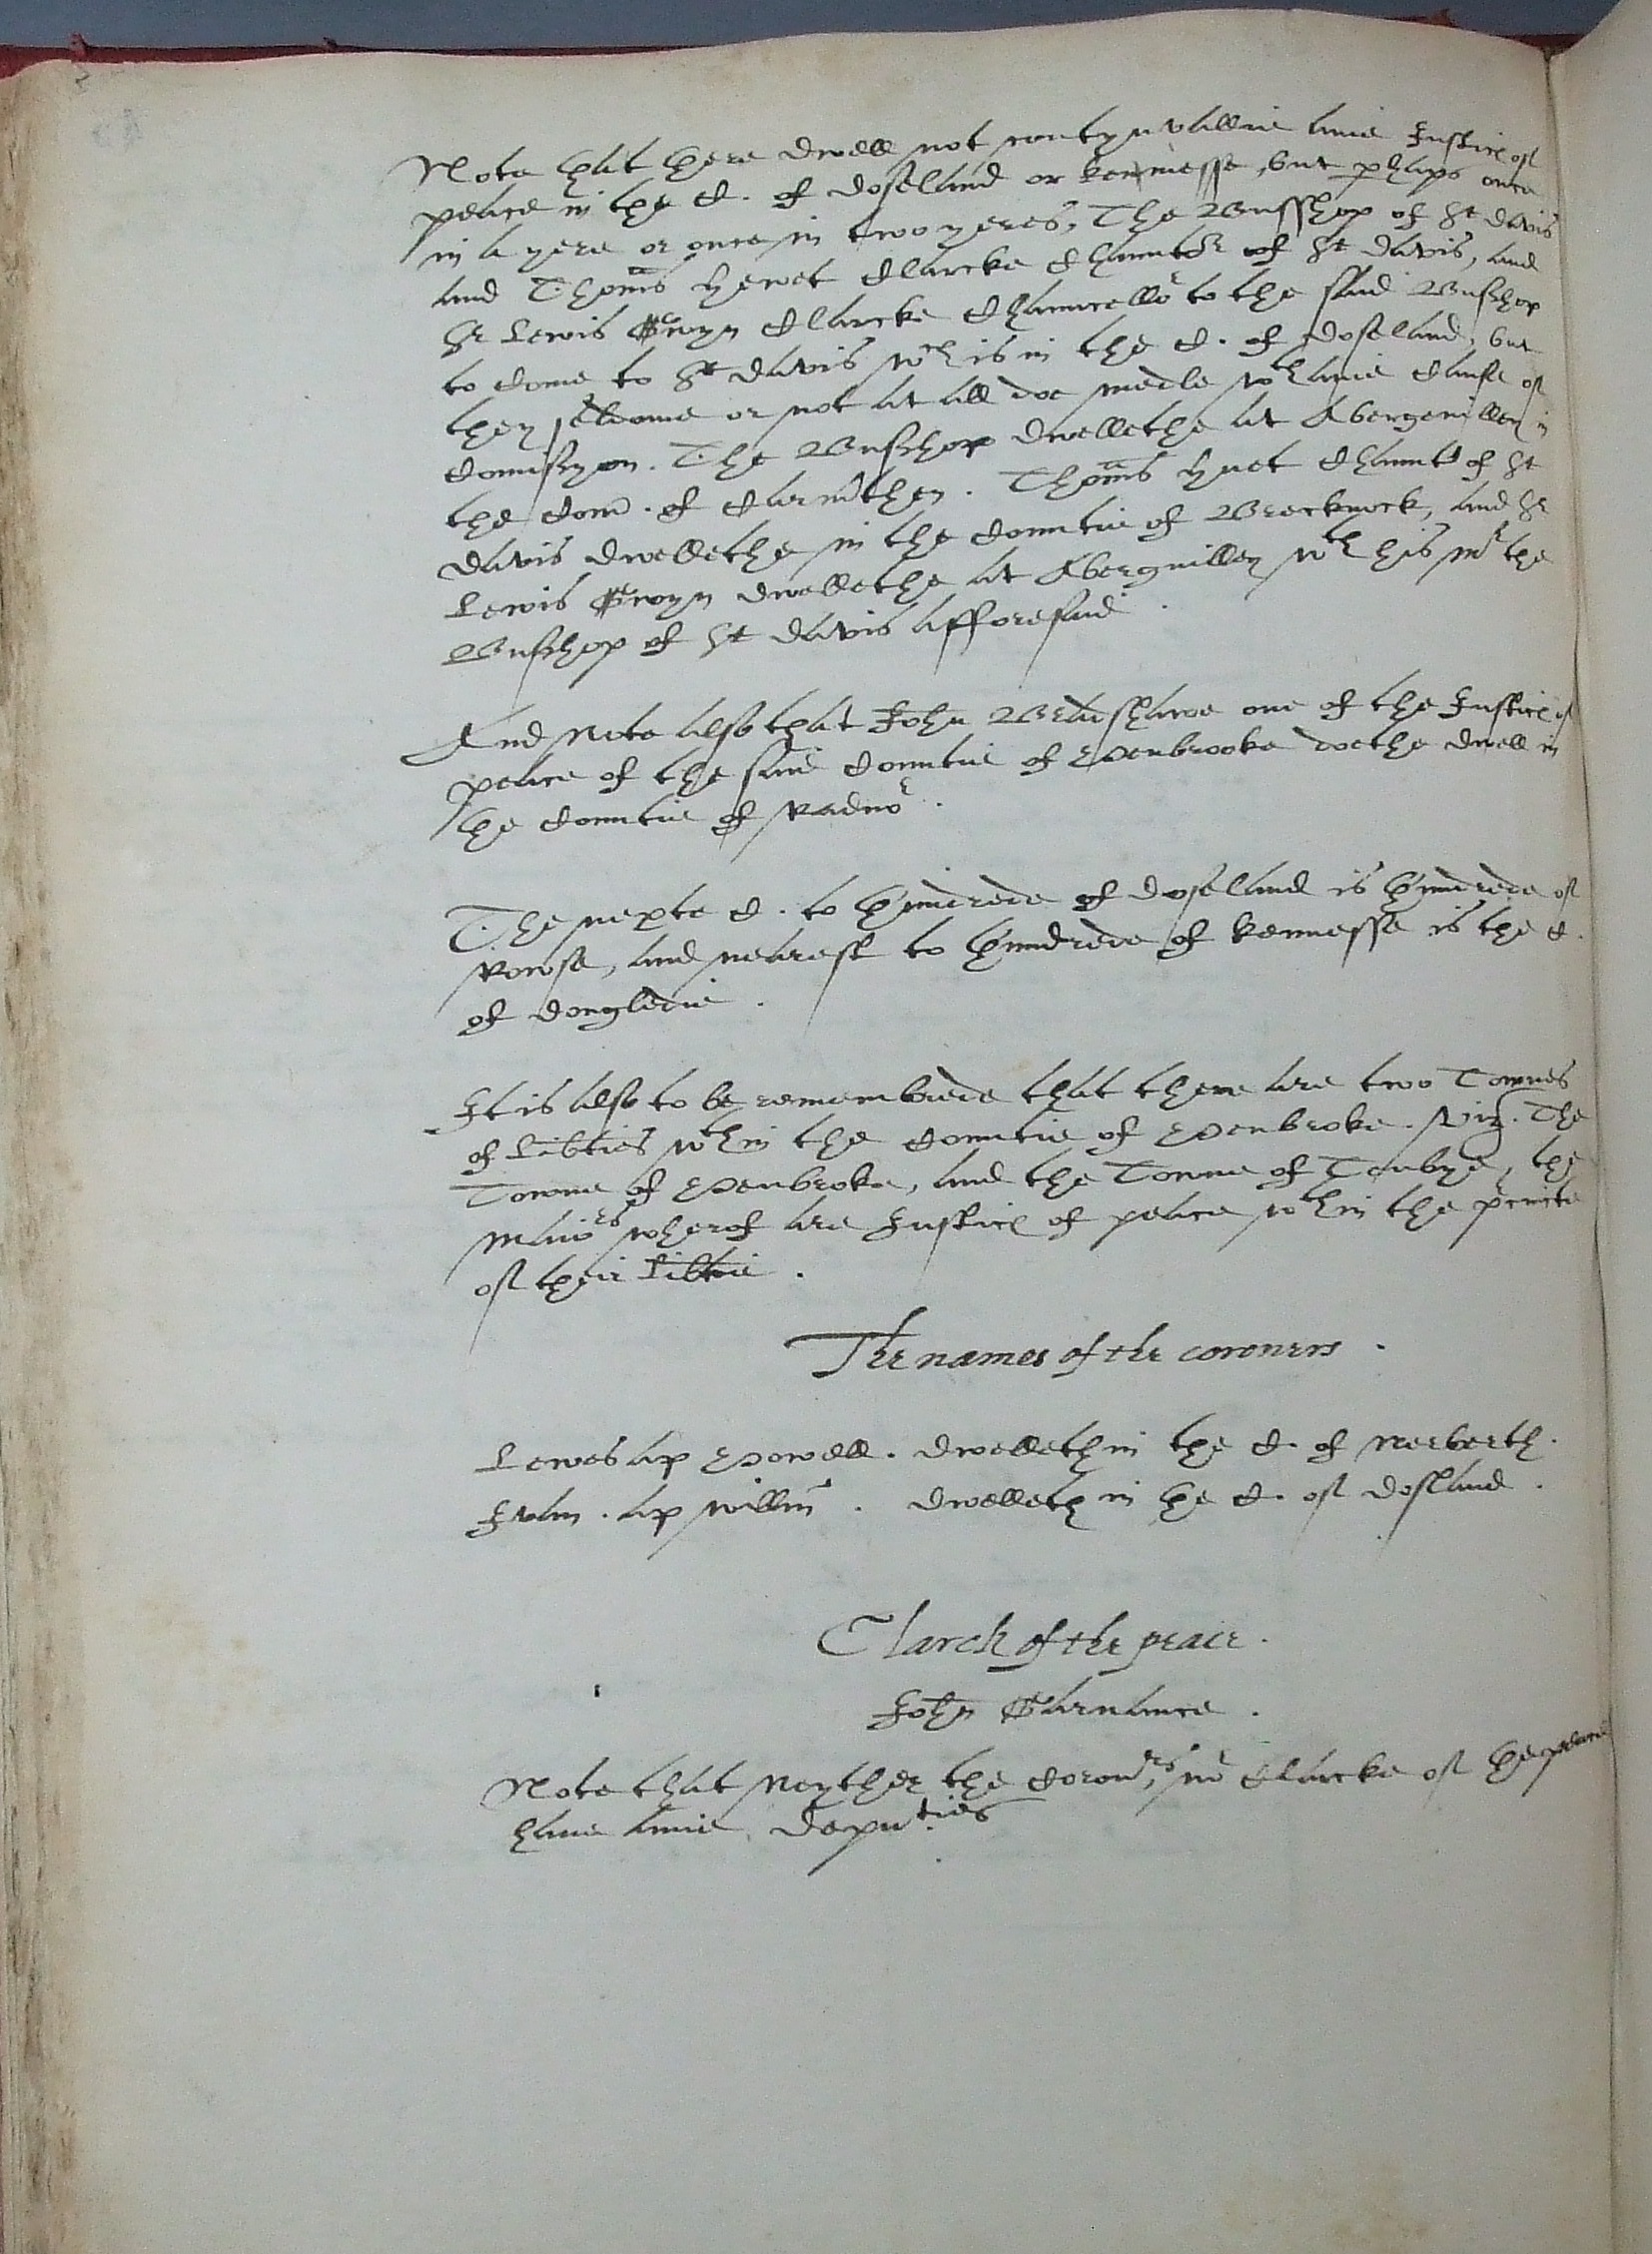 Note that there dwell not contynuallie anie Justices of
peace in the C. of Dosland or Kemmesse, but phaps once
in a yere or once in two yeres, The Busshop of St Davis
and Thoms Hewet Clarcke Chaunter of St Davis, and
Sr Lewis Gwyn Clarcke Chauncellor to the said Busshop
to come to St Davis wch is in the C. of Doseland, but
they seldome or not at all doe medle wth anie cause of
Comission. The Busshop dwellethe at Abergwilley in
the Com. of Carmthen. Thoms Huet Chaunt of St
Davis dwellethe in the Countie of Brecknock, and Sr
Lewis Gwyn dwellethe at Abergwilley wth his mr the
Busshop of St Davis afforesaid.
And Note also that John Bradshawe one of the Justices of
peace of the said Countie of Penbrooke doethe dwell in
the Countie of Radnor.
The nexte C. to hundrede of Doseland is hundrede of
Rowse, and nearest to hundrede of Kemesse is the C.
of Dongledie.
It is also to be remembrede that there are two Townes
of Libties wthin the Countie of Penbroke. Viz. The
Towne of Penbroke, and the Towne of Tenbye, the
Maiors wherof are Justices of peace wthin the pcincte
of their Libtie.
The names of the coroners.
Lewes ap Powell. dwelleth in the C. of Nerberth.
Jevan. ap Willm. dwelleth in the C. of Dosland.
Clarck of the peace.
John Garnance.
Note that Neyther the Coroners, nor Clarcke of the peace
have anie deputies